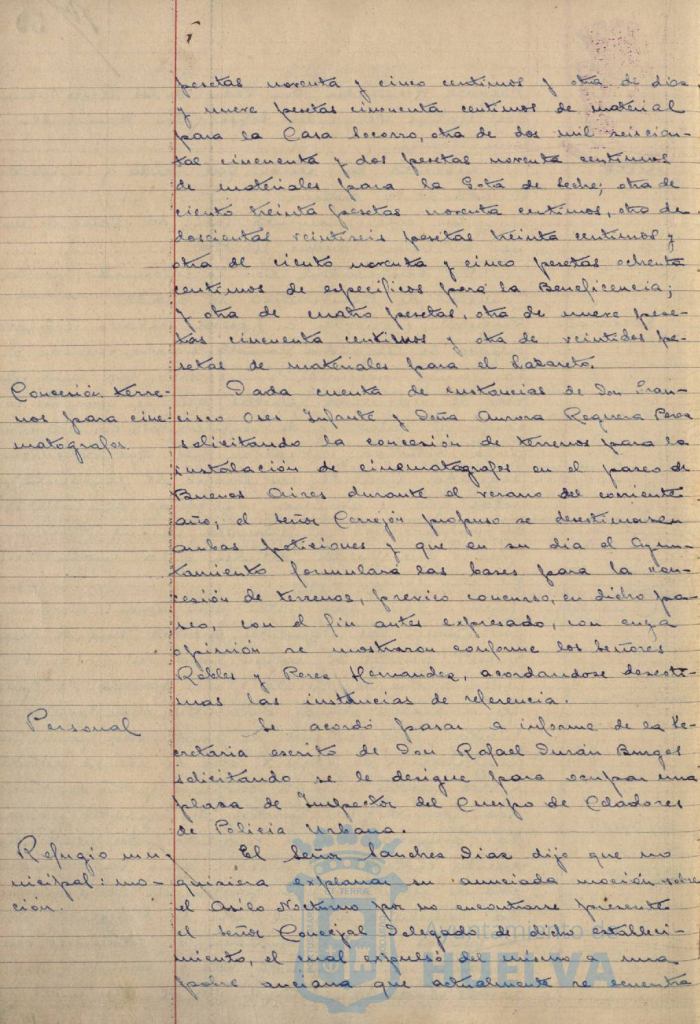 pesetas noventa y cinco centimos y otra de diez
y nueve pesetas cincuenta centimos de material
para la Casa Socorro, otra de dos mil seiscien-
tas cincuenta y dos pesetas noventa centimos
de materiales para la Gota de Leche; otra de
ciento treinta pesetas noventa centimos, otra de
doscientas veintiseis pesetas treinta centimos y
otra de ciento noventa y cinco pesetas ochenta
centimos de especificos para la Beneficencia;
y otra de cuatro pesetas, otra de nueve pese-
tas cincuenta centimos y otra de veintidos pe-
setas de materiales para el Lazareto.
Concesión terre-
nos para cine-
matografos.
Dada cuenta de instancias de Don Fran-
cisco Oses Infante y Doña Aurora Requena Perea
solicitando la concesión de terrenos para la
instalación de cinematografos en el paseo de
Buenos Aires durante el verano del corriente
año, el Señor Cerrejón propuso se desestimasen
ambas peticiones y que en su dia el Ayun-
tamiento formulará las bases para la con-
cesión de terrenos, previo concurso, en dicho pa-
seo, con el fin antes expresado, con cuya
opinión se mostraron conforme los Señores
Robles y Perez Hernandez, acordandose desesti-
mas las instancias de referencia.
Personal
Se acordó pasar a informe de la Se-
cretaria escrito de Don Rafael Durán Burgos
solicitando se le designe para ocupar una
plaza de Inspector del Cuerpo de Celadores
de Policia Urbana.
Refugio mu-
nicipal: mo-
ción.
El Señor Sanchez Diaz dijo que no
quisiera explanar su anunciada moción sobre
el Asilo Nocturno por no encontrarse presente
el Señor Concejal Delegado de dicho estableci-
miento, el cual expulsó del mismo a una
pobre anciana que actualmente se encuentra
Ayuntamiento de
HUELVA